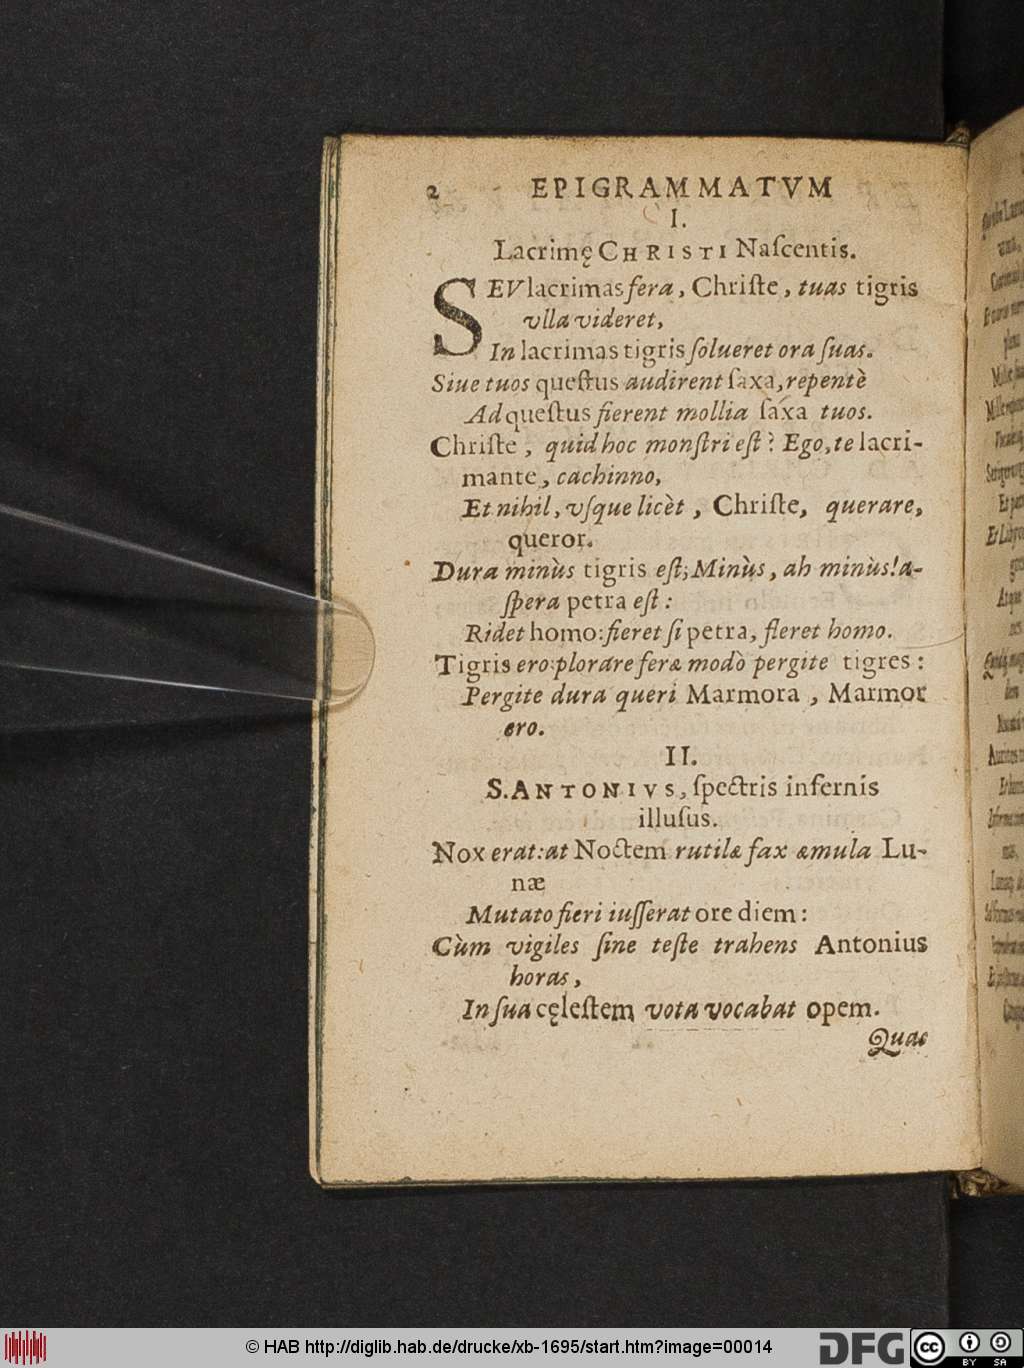 2 EPIGRAMMATVM
I.
Lacrimę CHRISTI Naſcentis.
SEV lacrimas fera, Chriſte, tuas tigris
vlla videret,
In lacrimas tigris ſolueret ora ſuas.
Siue tuos queſtus audirent ſaxa, repentè
Ad queſtus fierent mollia ſaxa tuos.
Chriſte, quid hoc monſtri eſt? Ego, te lacri-
mante, cachinno,
Et nihil, vſque licèt, Chriſte, querare,
queror.
Dura minùs tigris eſt; Minùs, ah minùs! a-
ſpera petra eſt:
Ridet homo: fieret ſi petra, fleret homo.
Tigris ero: plorare feræ modò pergite tigres:
Pergite dura queri Marmora, Marmor
ero.
II.
S. ANTONIVS, ſpectris infernis
illuſus.
Nox erat: at Noctem rutilæ fax æmula Lu-
næ
Mutato fieri iuſſerat ore diem:
Cùm vigiles ſine teſte trahens Antonius
horas,
In ſua cęleſtem vota vocabat opem.
Quae
© HAB http://diglib.hab.de/drucke/xb-1695/start.htm?image=00014
DFG cc BY SA